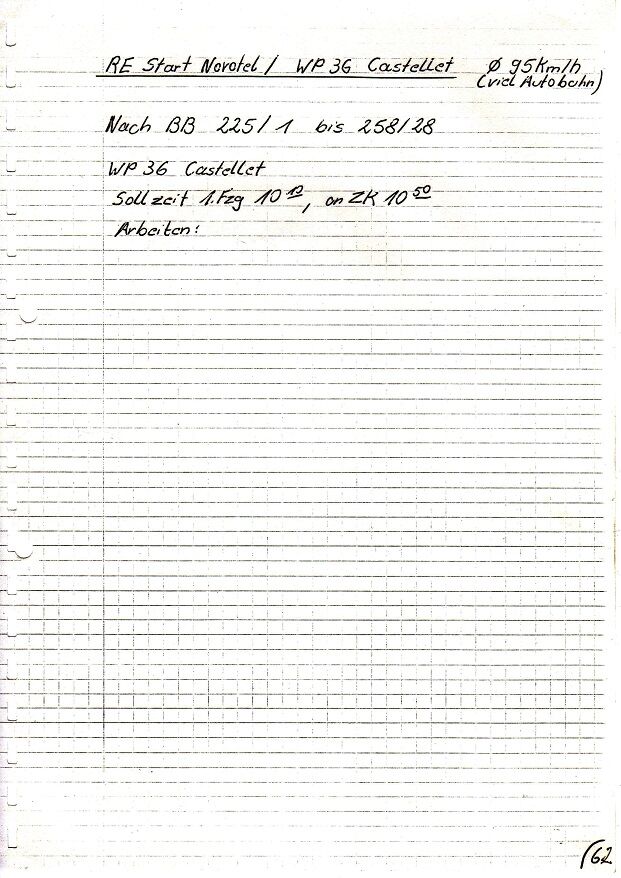 RE Start Novotel / WP 36 Castellet Ø 95 Km/h
(viel Autobahn)
Nach BB 225/1 bis 258/28
WP 36 Castellet
Sollzeit 1. Fzg 10 10, an ZK 10 50
Arbeiten:
(62